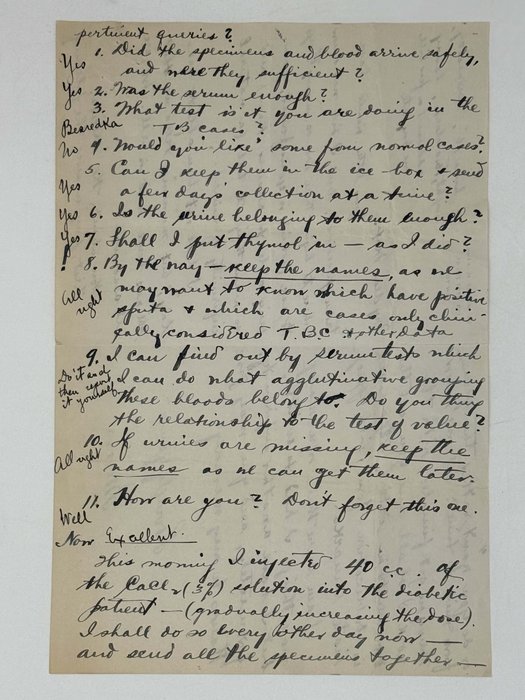 pertinent queries?
Yes 1. Did the specimens and blood arrive safely,
and were they sufficient?
Yes 2. Was the serum enough?
3. What test is it you are doing in the
Besredka T B cases?
No 4. Would you like some from normal cases?
5. Can I keep them in the ice box & send
Yes a few days' collection at a time?
Yes 6. Is the urine belonging to them enough?
Yes 7. Shall I put thymol in — as I did?
! 8. By the way — keep the names, as we
All right may want to know which have positive
sputa & which are cases only clini-
cally considered T.B.C. & other data
9. I can find out by serum tests which
Do it and then report it yourself I can do what agglutinative grouping
these bloods belong to. Do you think
the relationship to the test of value?
10. If urines are missing, keep the
All right names as we can get them later.
11. How are you? Don't forget this one.
Well
Now Excellent.
This morning I injected 40 c.c. of
the CaCl2 (3%) solution into the diabetic
patient — (gradually increasing the dose).
I shall do so every other day now —
and send all the specimens together —